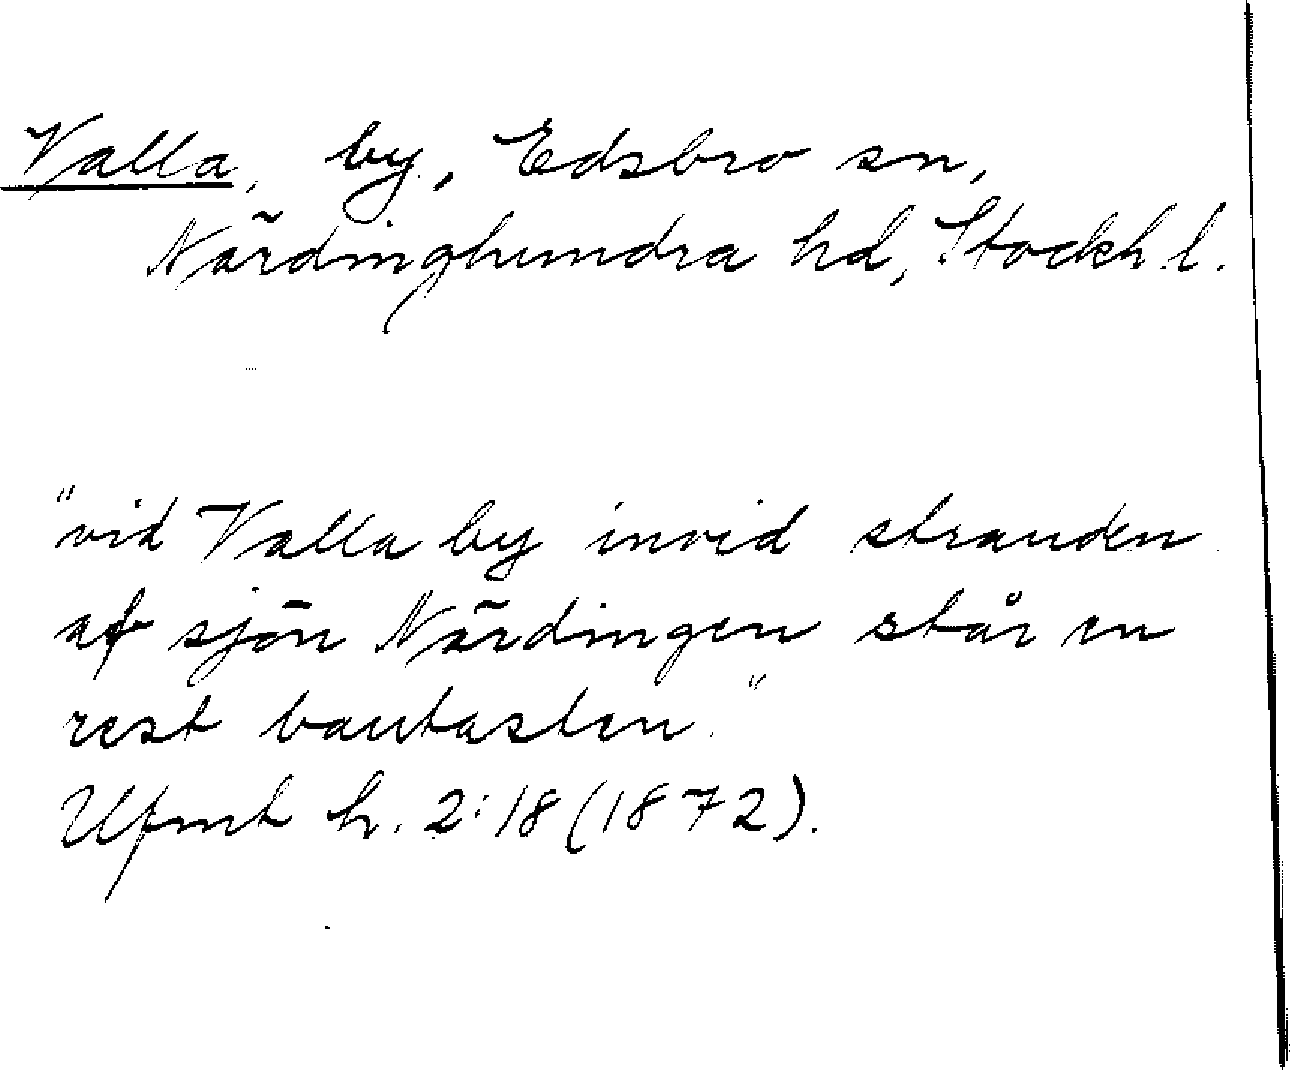 Valla, by, Edsbro sn,
Närdinghundra hd, Stockh. l.
"vid Valla by invid stranden
af sjön Närdingen står en
rest bautasten."
Ufmt h. 2:18 (1872).